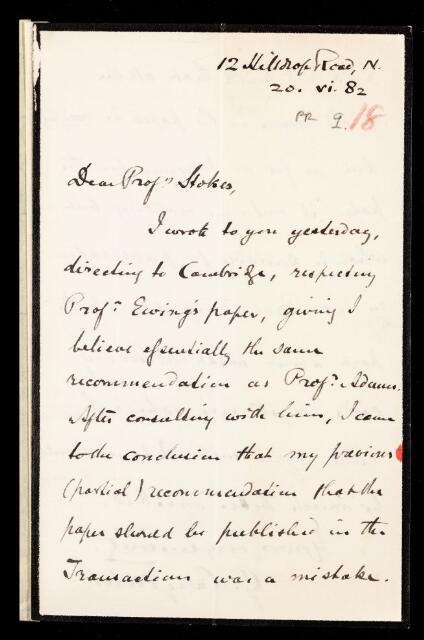 12 Hilldrop Road, N.
20. vi. 82
PR 9. 18
Dear Profr. Stokes,
I wrote to you yesterday,
directing to Cambridge, respecting
Profr. Ewing's paper, giving I
believe essentially the same
recommendation as Profr. Adams.
After consulting with him, I came
to the conclusion that my previous
(partial) recommendation that the
paper should be published in the
Transactions was a mistake.